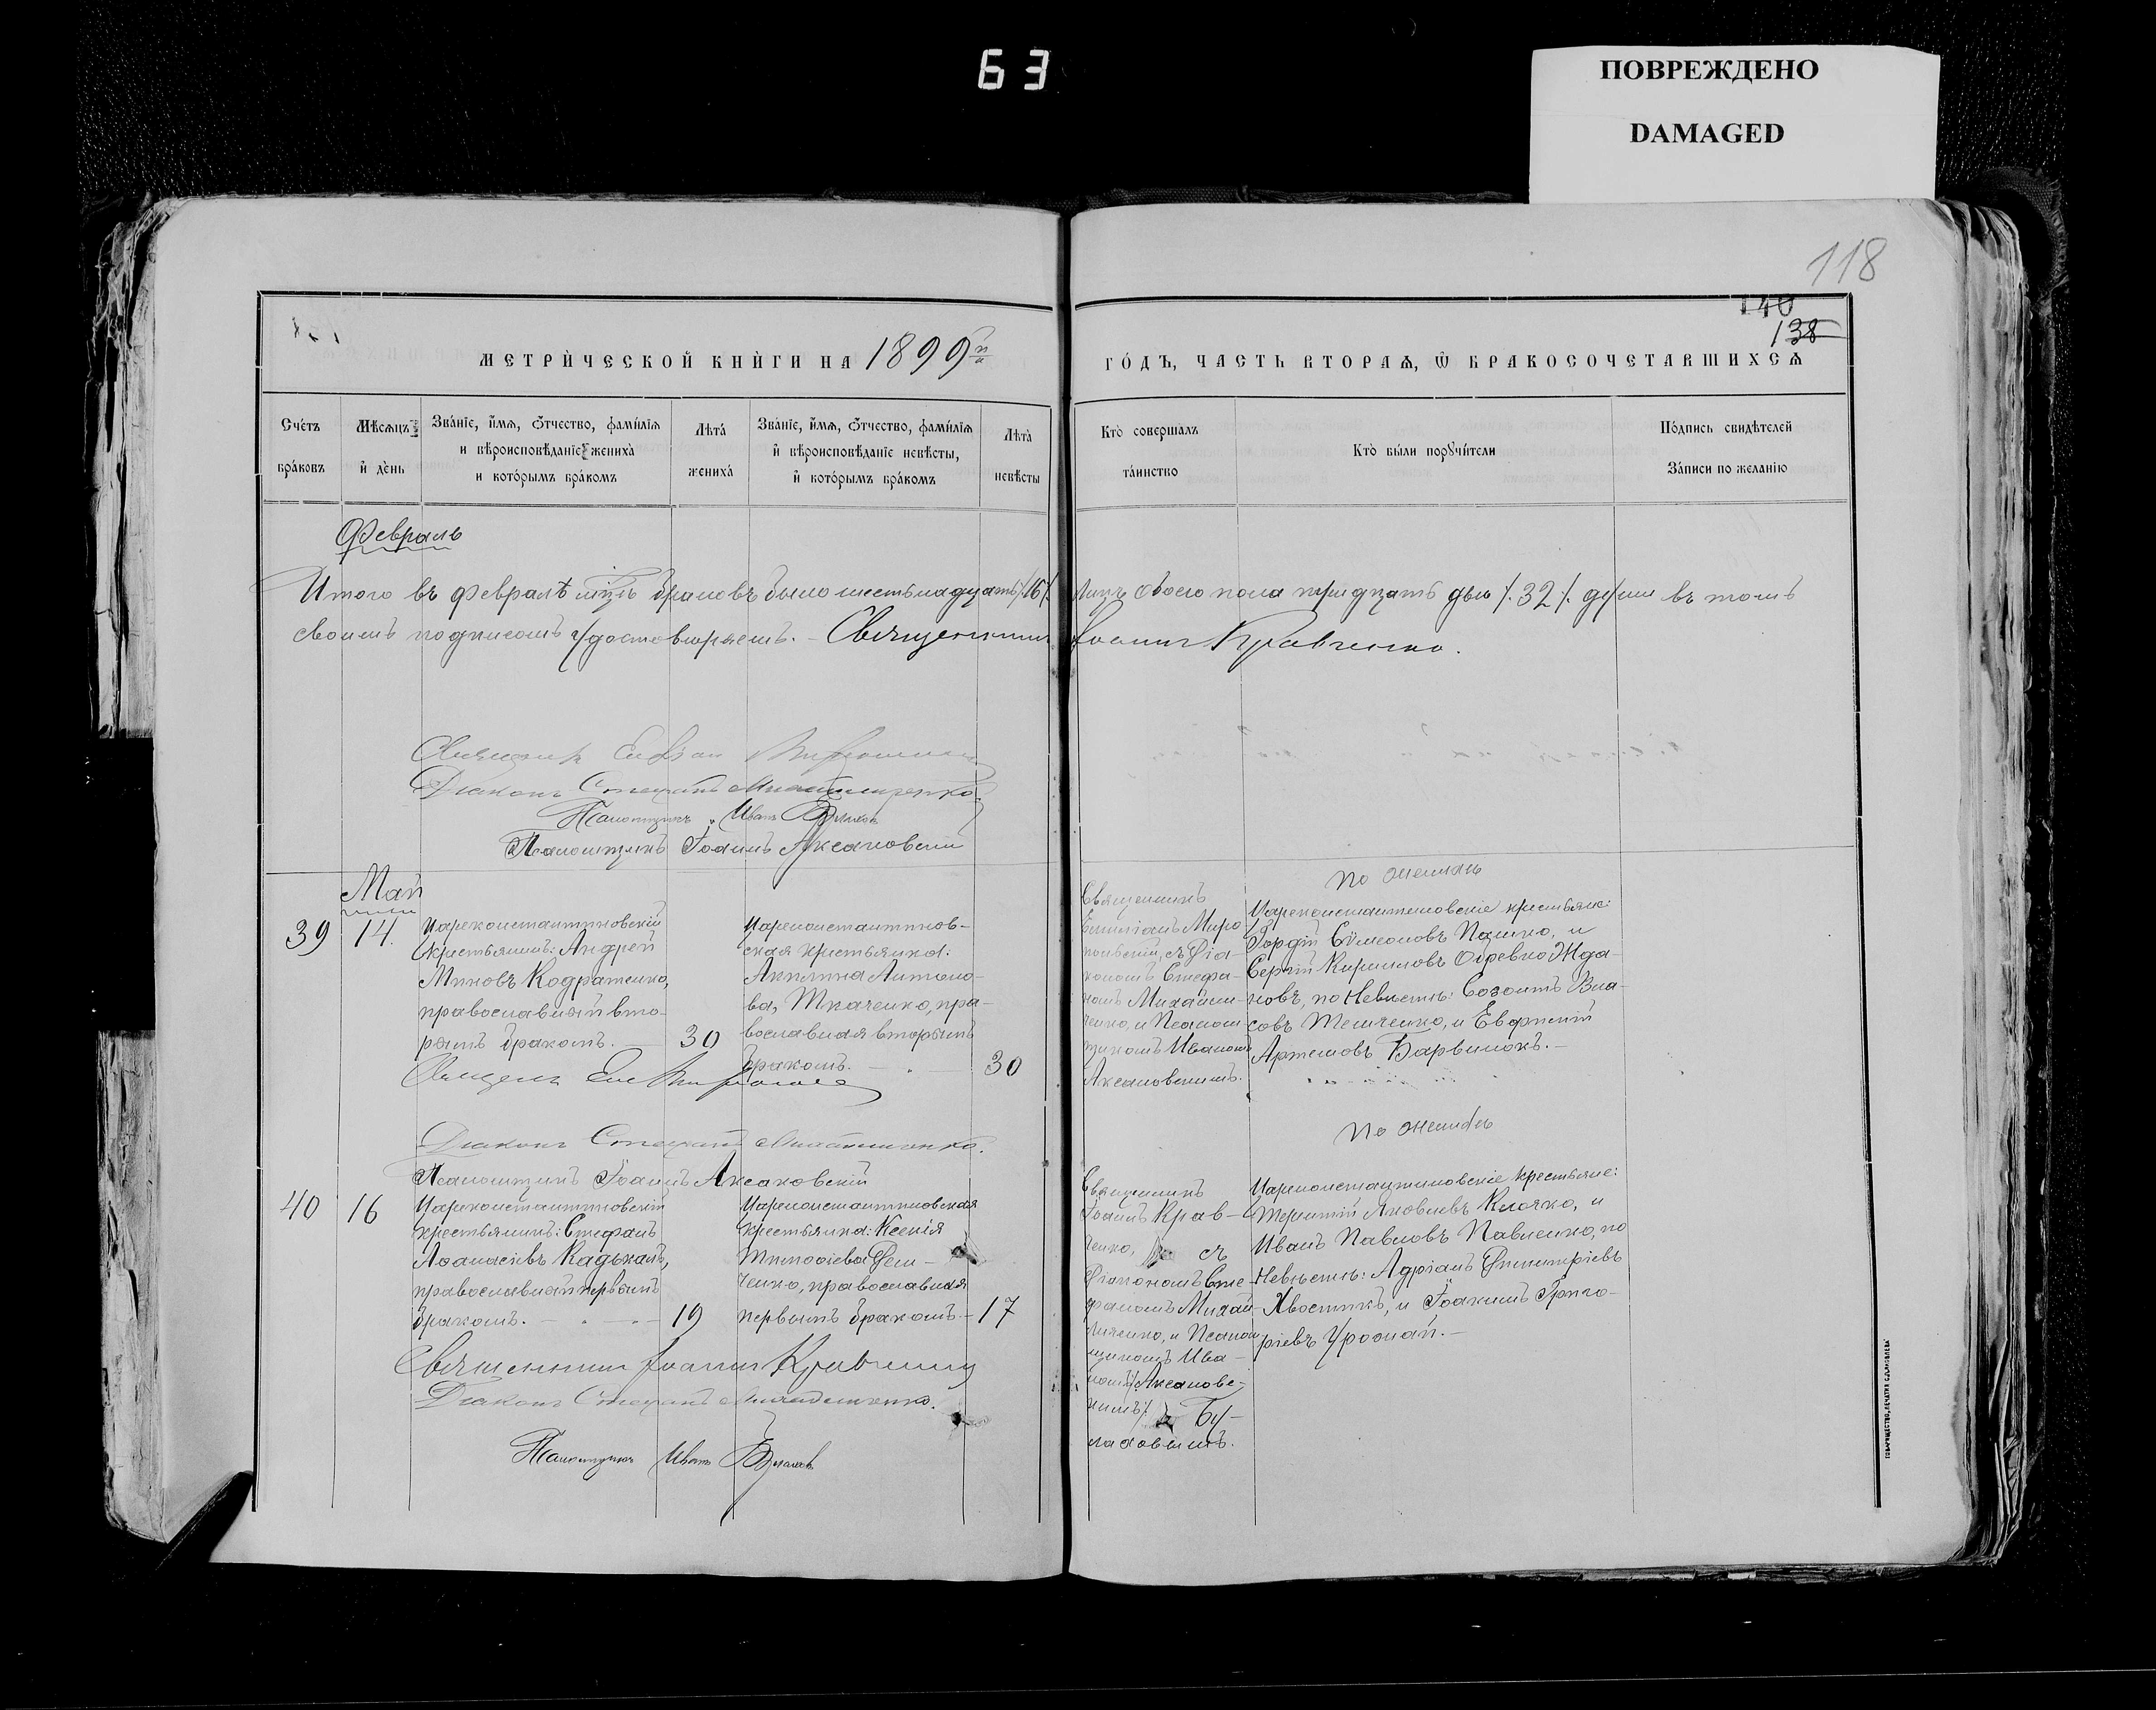 63
ПОВРЕЖДЕНО
DAMAGED
118
140
138
МЕТРИЧЕСКОЙ КНИГИ НА 1899 ГОДЪ, ЧАСТЬ ВТОРАЯ, Ѡ БРАКОСОЧЕТАВШИХСЯ
Счетъ браковъ
Мѣсяцъ и день
Званіе, имя, отчество, фамилія и вѣроисповѣданіе жениха и которымъ бракомъ
Лѣта жениха
Званіе, имя, отчество, фамилія и вѣроисповѣданіе невѣсты, и которымъ бракомъ
Лѣта невѣсты
Кто совершалъ таинство
Кто были поручители
Подпись свидѣтелей записи по желанію
Февраль
Итого въ Февралѣ мцѣ браковъ было шестнадцать /.16/. лицъ обоего пола тридцать двѣ /.32/. души въ томъ
своимъ подписомъ удостовѣряемъ. – Священникъ Іоаннъ Кравченко.
Діаконъ Стефанъ Михайличенко
Псаломщикъ Иванъ
Псаломщикъ Іоаннъ Аксаковскій
Май
39
14.
Цареконстантиновскій
крестьянинъ: Андрей
Миновъ Кодратенко,
православный вто-
рымъ бракомъ. –
30
Цареконстантинов-
ская крестьянка:
Акилина Антоно-
ва, Ткаченко, пра-
вославная вторымъ
бракомъ. –
30
Священникъ
Миро
съ Діа-
кономъ Стефа-
номъ Михайли-
ченко, и Псалом-
щикомъ Иваномъ
Аксаковскимъ.
По женихѣ
Цареконстантиновскіе крестьяне:
Гордій Сѵмеоновъ Пашко, и
Сергій Кирилловъ Жда-
новъ, по Невѣстѣ: Созонтъ Вла-
совъ и
Артемовъ Барвинокъ. –
Діаконъ Стефанъ Михайличенко.
Псаломщикъ Іоаннъ Аксаковскій
40
16
Цареконстантиновскій
крестьянинъ: Стефанъ
Аѳанасіевъ Кадькалъ,
православный первымъ
бракомъ. –
19
Цареконстантиновская
крестьянка: Ксенія
Тимоѳіева Дем-
ченко, православная
первымъ бракомъ. –
17
Священникъ
Іоаннъ Крав-
ченко, съ
Діакономъ Сте-
фаномъ Михай-
личенко, и Псалом
щикомъ Ива-
номъ /Аксаковс-
кимъ/. Бу-
лаховымъ.
По женихѣ
Цареконстантиновскіе крестьяне:
Терентій Яковлевъ Клочко, и
Иванъ Павловъ Павленко, по
Невѣстѣ: Адріанъ Димитріевъ
Хвостикъ, и Іоакимъ Григо-
ріевъ Урожай. –
Священникъ Іоаннъ Кравченко
Діаконъ Стефанъ Михайличенко.
Псаломщикъ Иванъ